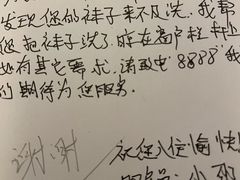 发现您的袜子来不及洗，我帮
您把袜子洗了晾在窗户栏杆上
如有其它需求，请致电"8888"我
们期待为您服务。
谢谢
祝您入住愉快
服务员：小